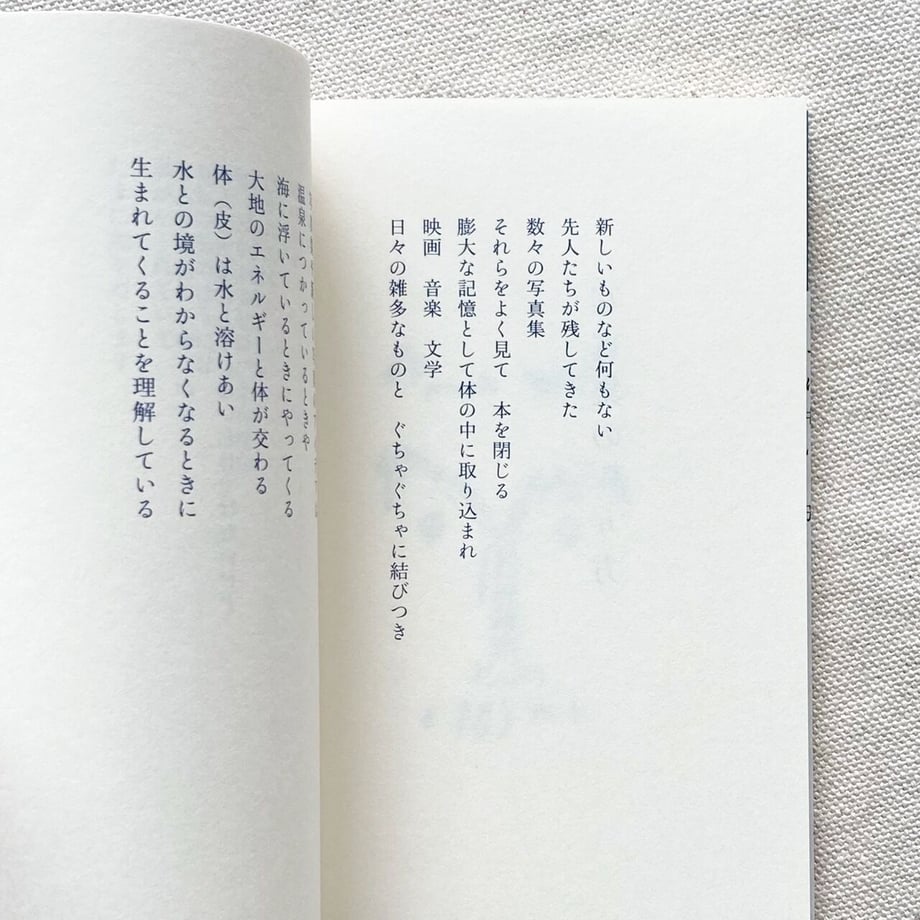 新しいものなど何もない
先人たちが残してきた
数々の写真集
それらをよく見て　本を閉じる
膨大な記憶として体の中に取り込まれ
映画　音楽　文学
日々の雑多なものと　ぐちゃぐちゃに結びつき
温泉につかっているときや
海に浮いているときにやってくる
大地のエネルギーと体が交わる
体（皮）は水と溶けあい
水との境がわからなくなるときに
生まれてくることを理解している